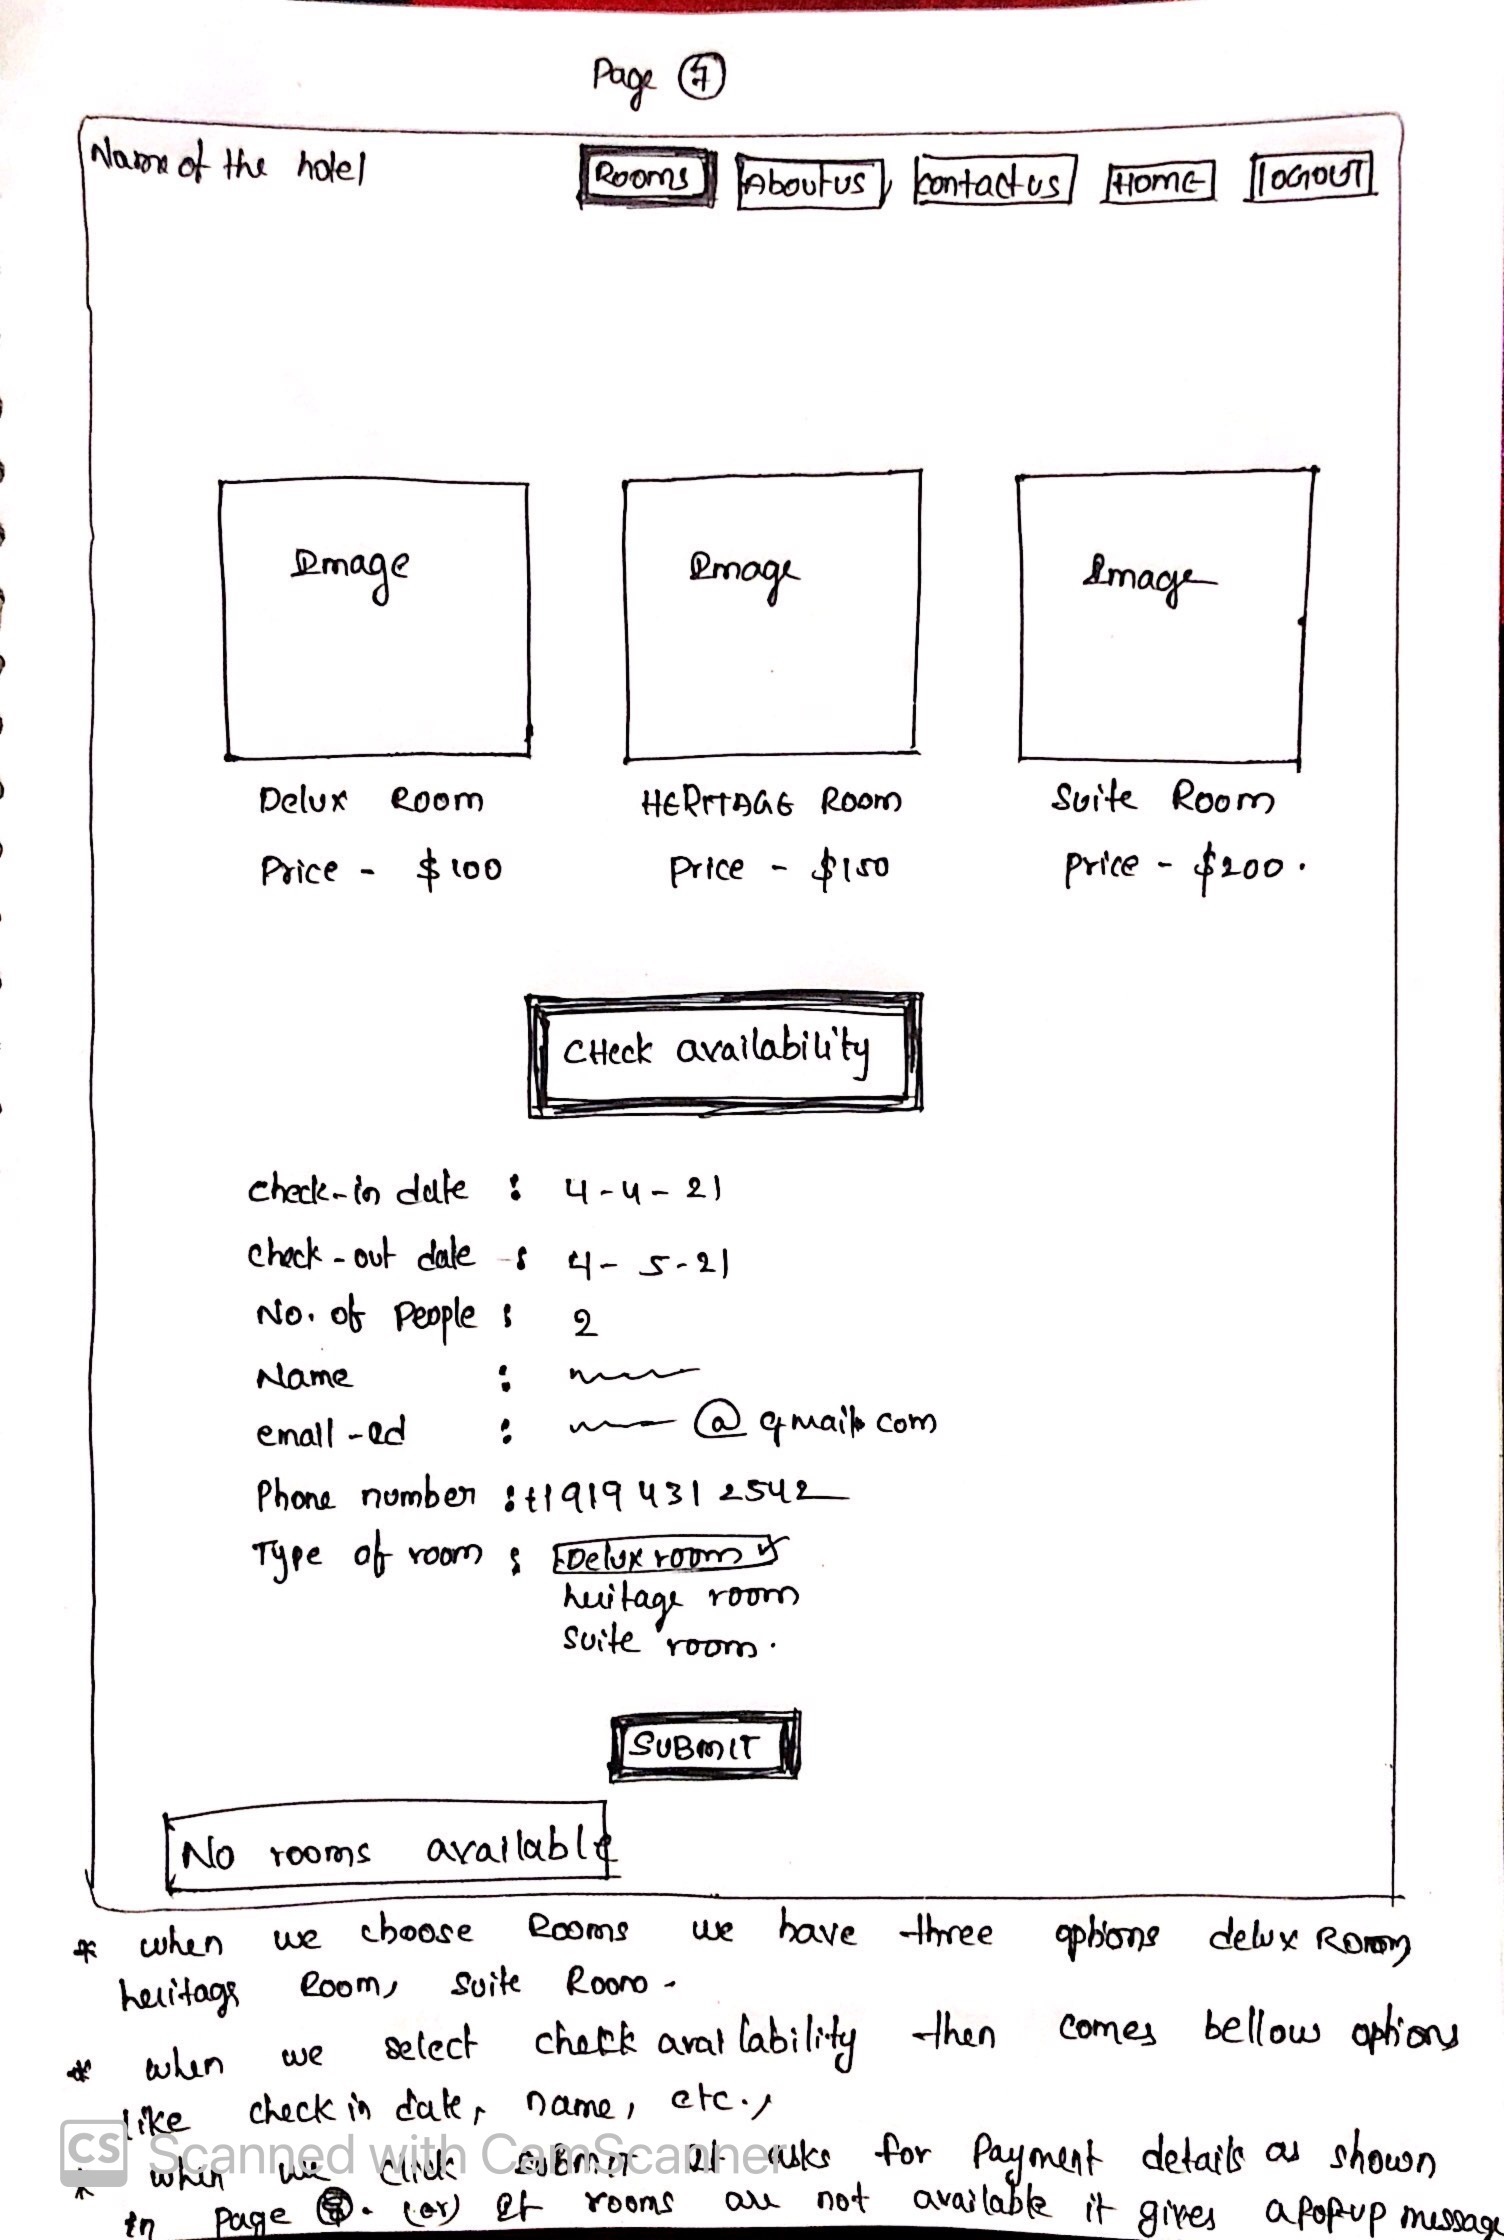 Page 7
Name of the hotel
Rooms
About us
contact us
HOME
LOGOUT
Image
Image
Image
Delux Room
HERITAGE Room
Suite Room
Price - $100
Price - $150
Price - $200.
CHeck availability
check-in date : 4-4-21
check-out date : 4-5-21
No. of People : 2
Name :
email-Id : @gmail.com
Phone number : +1 919 431 2542
Type of room : Delux room
heritage room
suite room.
SUBMIT
No rooms available
* when we choose Rooms we have three options delux Room
heritage Room, Suite Room.
* when we select check availability then comes bellow options
like check in date, name, etc.,
* when we click submit It asks for Payment details as shown
in page (or) If rooms are not available it gives a Pop-up message
CS Scanned with CamScanner